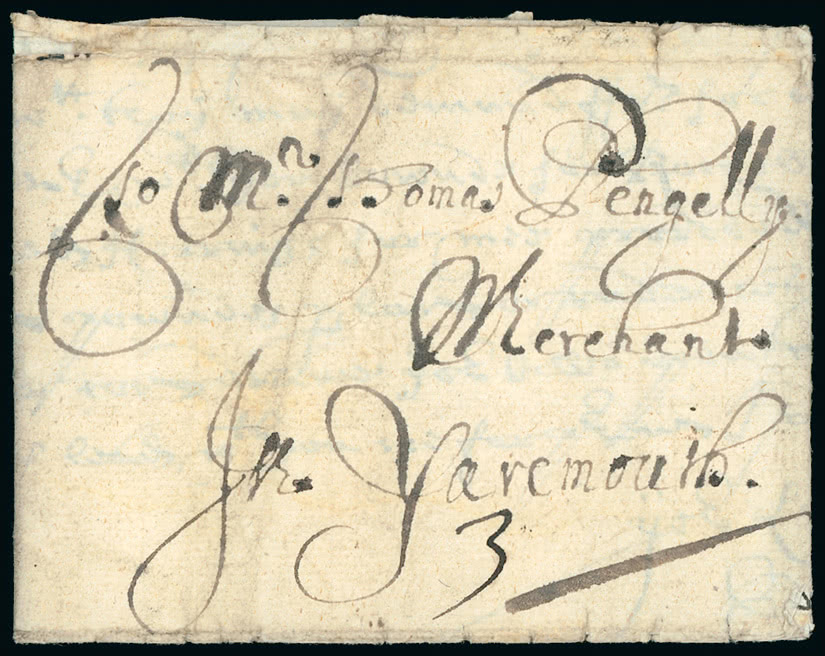 To Mr. Thomas Pengelly.
Merchant
In Yaremouth.
3